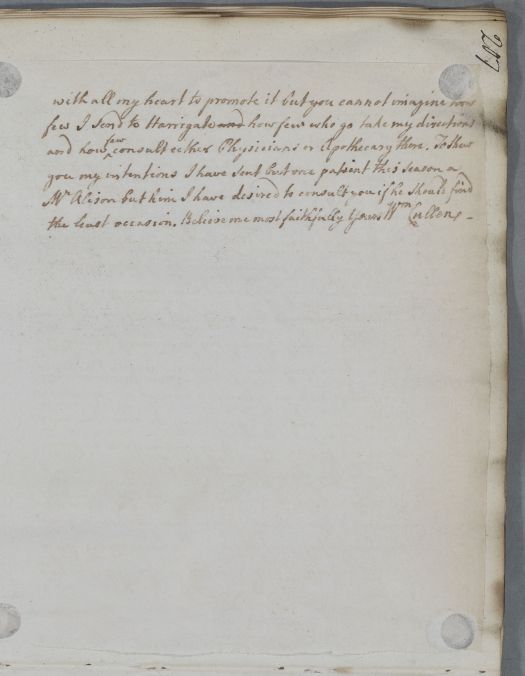 207
with all my heart to promote it but you cannot imagine how
few I send to Harrigate and how few who go take my directions
and how few consult either Physicians or Apothecary there. To shew
you my intentions I have sent but one patient this season a
Mr. Alison but him I have desired to consult you if he should find
the least occasion. Believe me most faithfully yours Wm Cullen, -